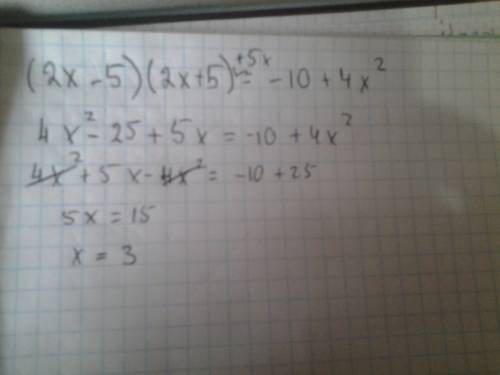 (2x - 5)(2x+5)+5x = -10 + 4x²
4x² - 25 + 5x = -10 + 4x²
4x² + 5x - 4x² = -10 + 25
5x = 15
x = 3